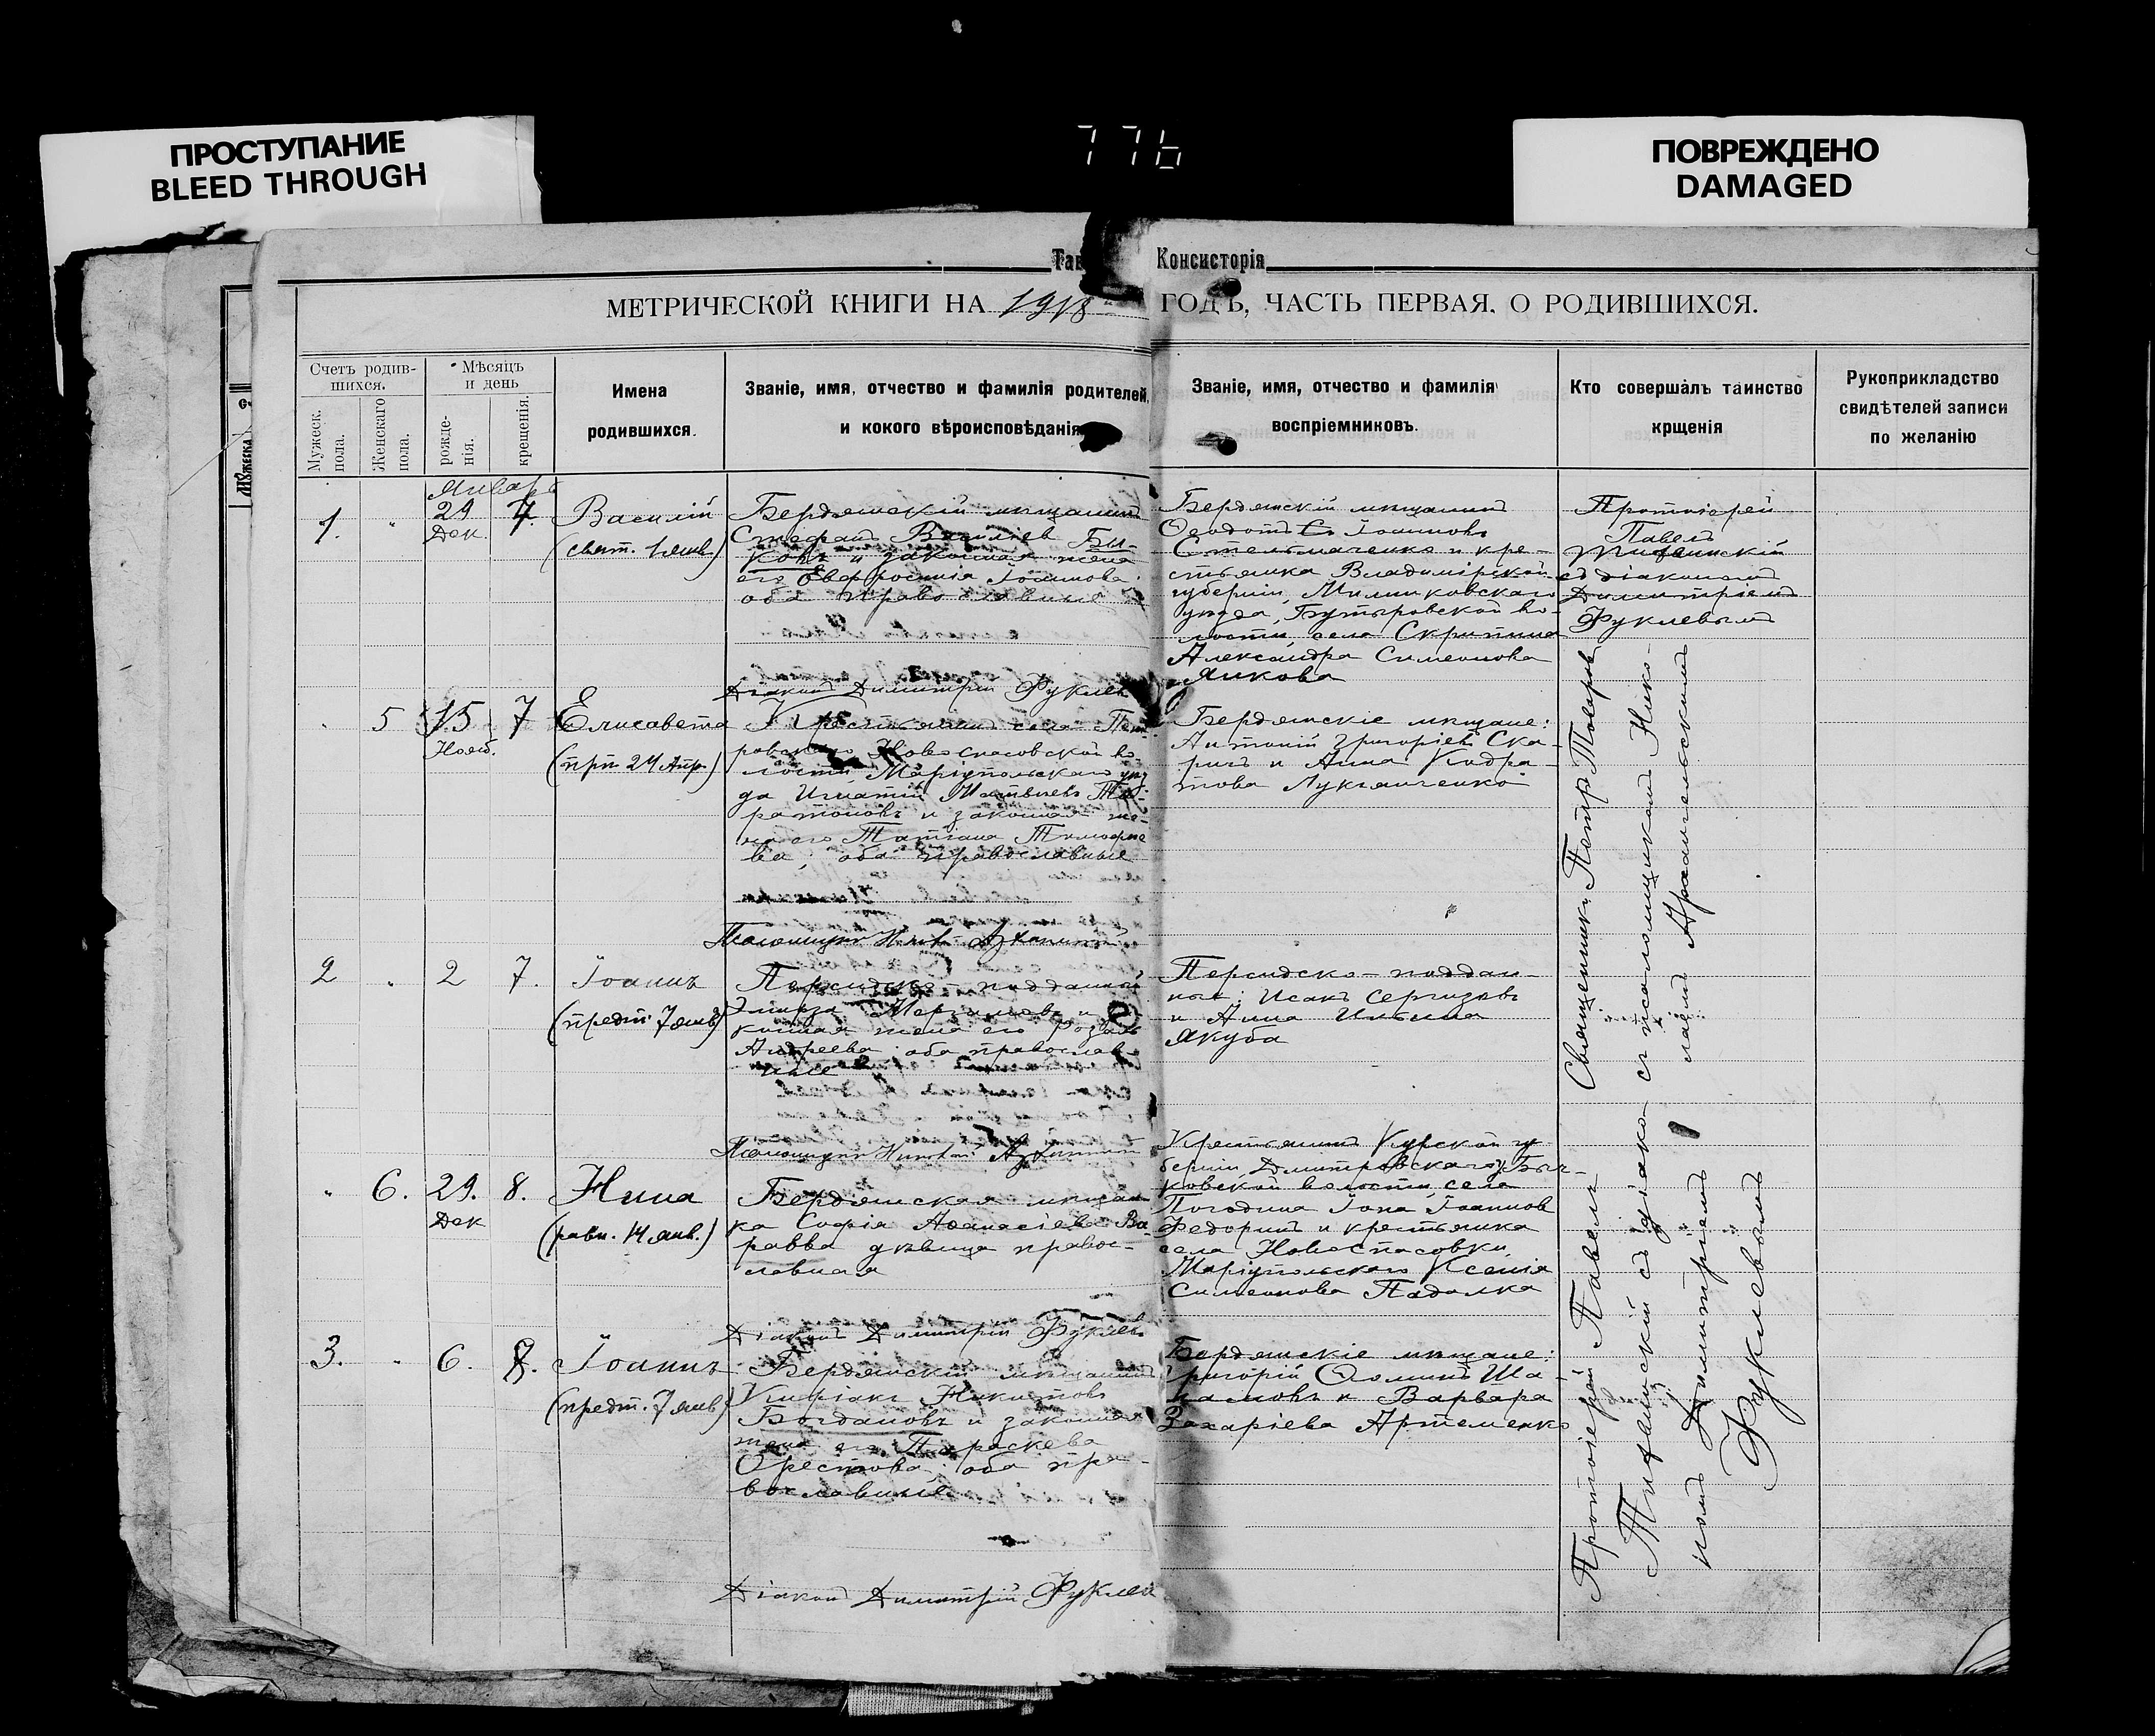 ПРОСТУПАНИЕ
BLEED THROUGH
776
ПОВРЕЖДЕНО
DAMAGED
Тав
Консисторія
МЕТРИЧЕСКОЙ КНИГИ НА 1918
ГОДЪ, ЧАСТЬ ПЕРВАЯ, О РОДИВШИХСЯ.
Счетъ родив-
шихся.
Мужеск.
пола.
Женскаго
пола.
Мѣсяцъ
и день
рожде-
нія.
крещенія.
Имена
родившихся.
Званіе, имя, отчество и фамилія родителей,
и кокого вѣроисповѣданія
Званіе, имя, отчество и фамилія
воспріемниковъ.
Кто совершалъ таинство
крщенія
Рукоприкладство
свидѣтелей записи
по желанію
Январь
1.
"
29
Дек.
7.
Василій
(свят. 1 янв.)
Бердянскій мѣщанинъ
Стефанъ Васильев Бы-
ковъ и законная жена
его Евфросинія Іоаннова
оба православные
Діаконъ Димитрій Фуклевъ
Бердянскій мѣщанинъ
Ѳеодотъ Іоанновъ
Стельмаченко и кре-
стьянка Владимірской
губерніи,
уѣзда, Бутыровской во-
лости, села Скрипина
Александра Симеонова
Янкова
Протоіерей
Павелъ
съ діакономъ
Димитріемъ
Фуклевымъ
"
5
15
Нояб.
7
Елисавета
(прп 24 Апр.)
Крестьянинъ села Пет-
ровскаго Новоспасовской во-
лости Маріупольскаго уѣз
да Игнатій Матвѣевъ
и законная же-
на его Татіана Тимофѣе
ва, оба православные
Бердянскіе мѣщане:
Антоній Григоріевъ Ска-
рик и Анна Кодра-
това Лукьянченко
Священник Петръ
съ псаломщикомъ Нико-
лаемъ Архангельскимъ
2
"
2
7.
Іоаннъ
(предт. 7 янв.)
Персидско-подданный
и за
конная жена его
Андреева оба православ-
ные
Персидско-поддан-
ные: Исакъ Сергизовъ
и Анна Ильина
Якуба
"
6.
29.
Дек
8.
Нина
(равн. 14 янв.)
Бердянская мѣщан
ка Софія Аѳанасіева Ва-
равва дѣвица правос-
лавная
Діаконъ Димитрій Фуклевъ
Крестьянинъ Курской гу
берніи Дмитровскаго у. Быч-
ковской волости села
Погодина Іона Іоаннов
Федоринъ и крестьянка
села Новоспасовки
Маріупольскаго Ксенія
Симеонова Падалка
Протоіерей Павелъ
съ діако-
номъ Димитріемъ
Фуклевымъ
3.
"
6.
8.
Іоаннъ
(предт. 7 янв.)
Бердянскій мѣщанинъ
Киріакъ Никитовъ
Богдановъ и законная
жена его Параскева
Орестова; оба пра-
вославные
Діаконъ Димитрій Фуклев
Бердянскіе мѣщане:
Григорій Ѳоминъ Ша-
и Варвара
Захаріева Артеменко